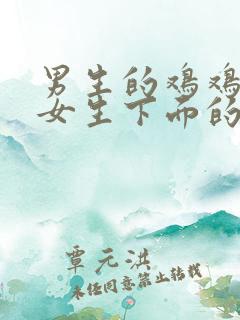 男生的鸡鸡
女生下面的
覃元洪
未经同意禁止转载